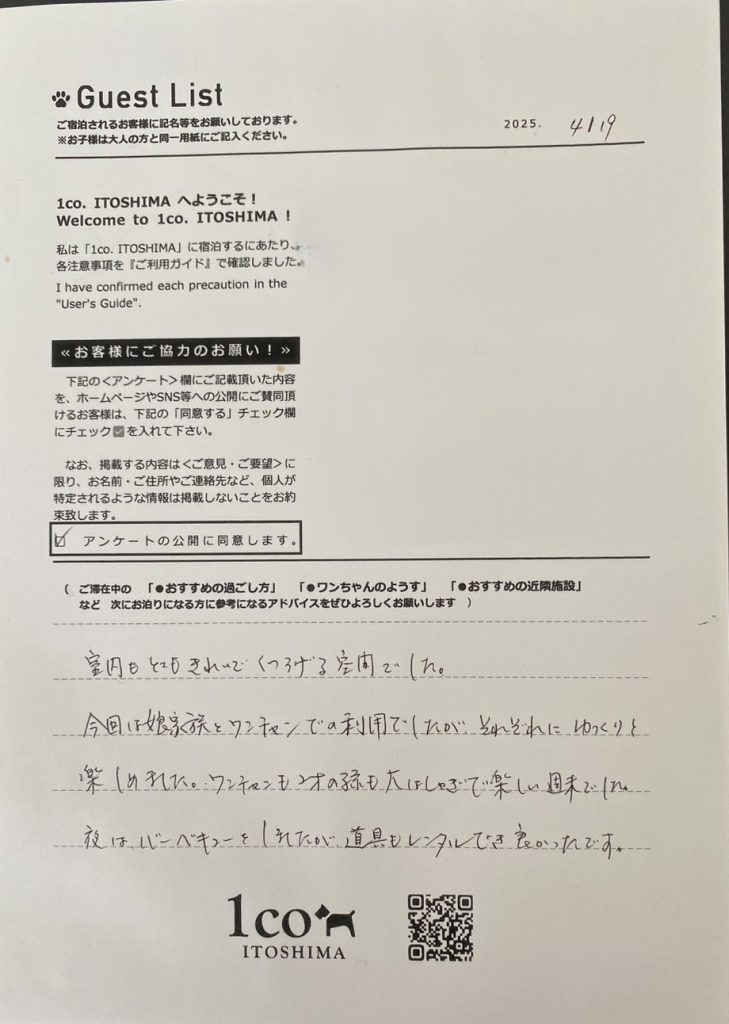 Guest List
ご宿泊されるお客様に記名等をお願いしております。
※お子様は大人の方と同一用紙にご記入ください。
2025. 4/19
1co. ITOSHIMA へようこそ!
Welcome to 1co. ITOSHIMA !
私は「1co. ITOSHIMA」に宿泊するにあたり、
各注意事項を『ご利用ガイド』で確認しました。
I have confirmed each precaution in the
"User's Guide".
≪お客様にご協力のお願い!≫
下記の<アンケート>欄にご記載頂いた内容
を、ホームページやSNS等への公開にご賛同頂
けるお客様は、下記の「同意する」チェック欄
にチェック☑を入れて下さい。
なお、掲載する内容は<ご意見・ご要望>に
限り、お名前・ご住所やご連絡先など、個人が
特定されるような情報は掲載しないことをお約
束致します。
☑ アンケートの公開に同意します。
( ご滞在中の 「●おすすめの過ごし方」 「●ワンちゃんのようす」 「●おすすめの近隣施設」
など 次にお泊りになる方に参考になるアドバイスをぜひよろしくお願いします )
室内もとてもきれいでくつろげる空間でした。
今回は娘家族とワンチャンでの利用でしたが、それぞれにゆっくりと
楽しめました。ワンチャンも2才の孫も大はしゃぎで楽しい週末でした。
夜はバーベキューをしましたが、道具もレンタルでき良かったです。
1co
ITOSHIMA